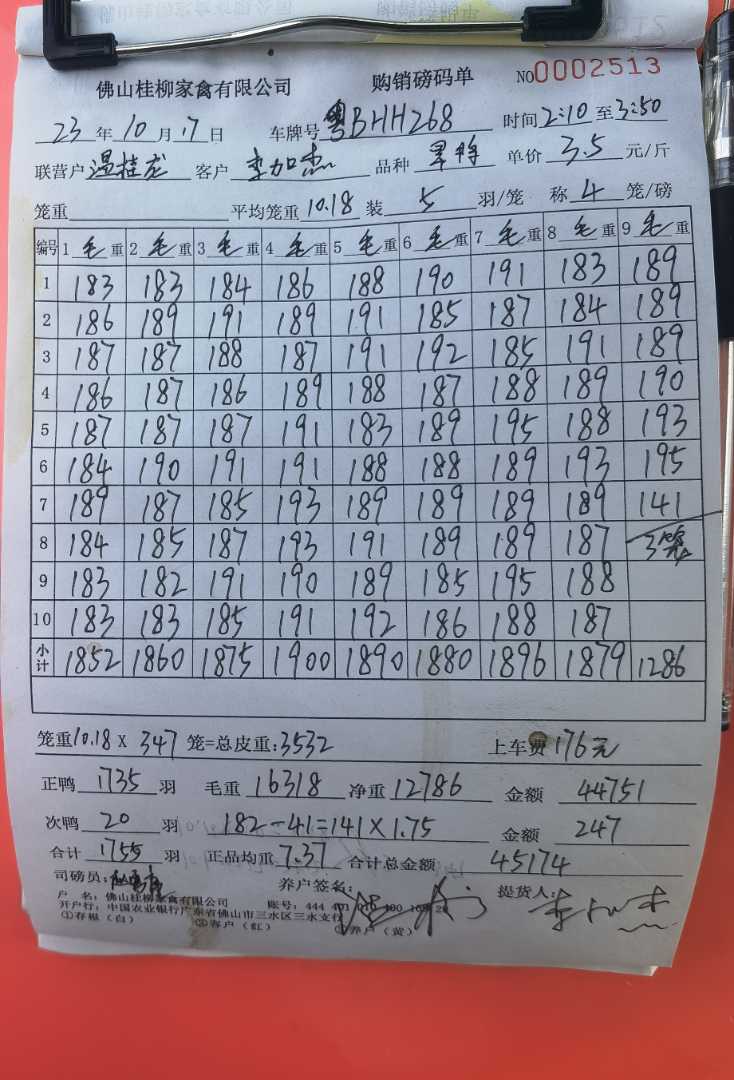 佛山桂柳家禽有限公司 购销磅码单 NO0002513
23年10月17日 车牌号 粤BHH268 时间2:10至3:50
联营户 温桂龙 客户 李加杰 品种 单价 3.5 元/斤
笼重 平均笼重 10.18 装 5 羽/笼 称 4 笼/磅
编号 1 毛重 2 毛重 3 毛重 4 毛重 5 毛重 6 毛重 7 毛重 8 毛重 9 毛重
1 183 183 184 186 188 190 191 183 189
2 186 189 191 189 191 185 187 184 189
3 187 187 188 187 191 192 185 191 189
4 186 187 186 189 188 187 188 189 190
5 187 187 187 191 183 189 195 188 193
6 184 190 191 191 188 188 189 193 195
7 189 187 185 193 189 189 189 189 141
8 184 185 187 193 191 189 189 187 3笼
9 183 182 191 190 189 185 195 188
10 183 183 185 191 192 186 188 187
小计 1852 1860 1875 1900 1890 1880 1896 1879 1286
笼重10.18 X 347 笼=总皮重:3532 上车费 176元
正鸭 1735 羽 毛重 16318 净重 12786 金额 44751
次鸭 20 羽 182-41=141×1.75 金额 247
合计 1755 羽 正品均重 7.37 合计总金额 45174
司磅员: 养户签名: 提货人:
户 名: 佛山桂柳家禽有限公司 账号: 444
开户行: 中国农业银行广东省佛山市三水区三水支行
①存根(白) ②客户(红) 养户(黄)